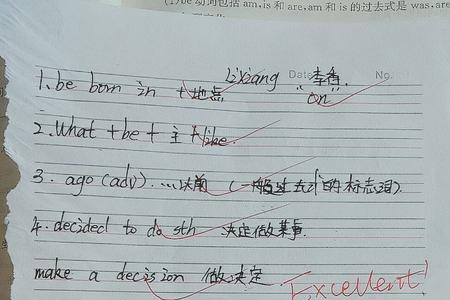 (1)be 动词包括 am,is 和 are,am 和 is 的过去式是 was,are
Lixiang Date 李香 No.
1.be born in +地点 on
2.What +be+主+like.
3. ago (adv). ...以前 (一般过去时的标志词)
4. decided to do sth 决定做某事.
make a decision 做决定
Excellent!